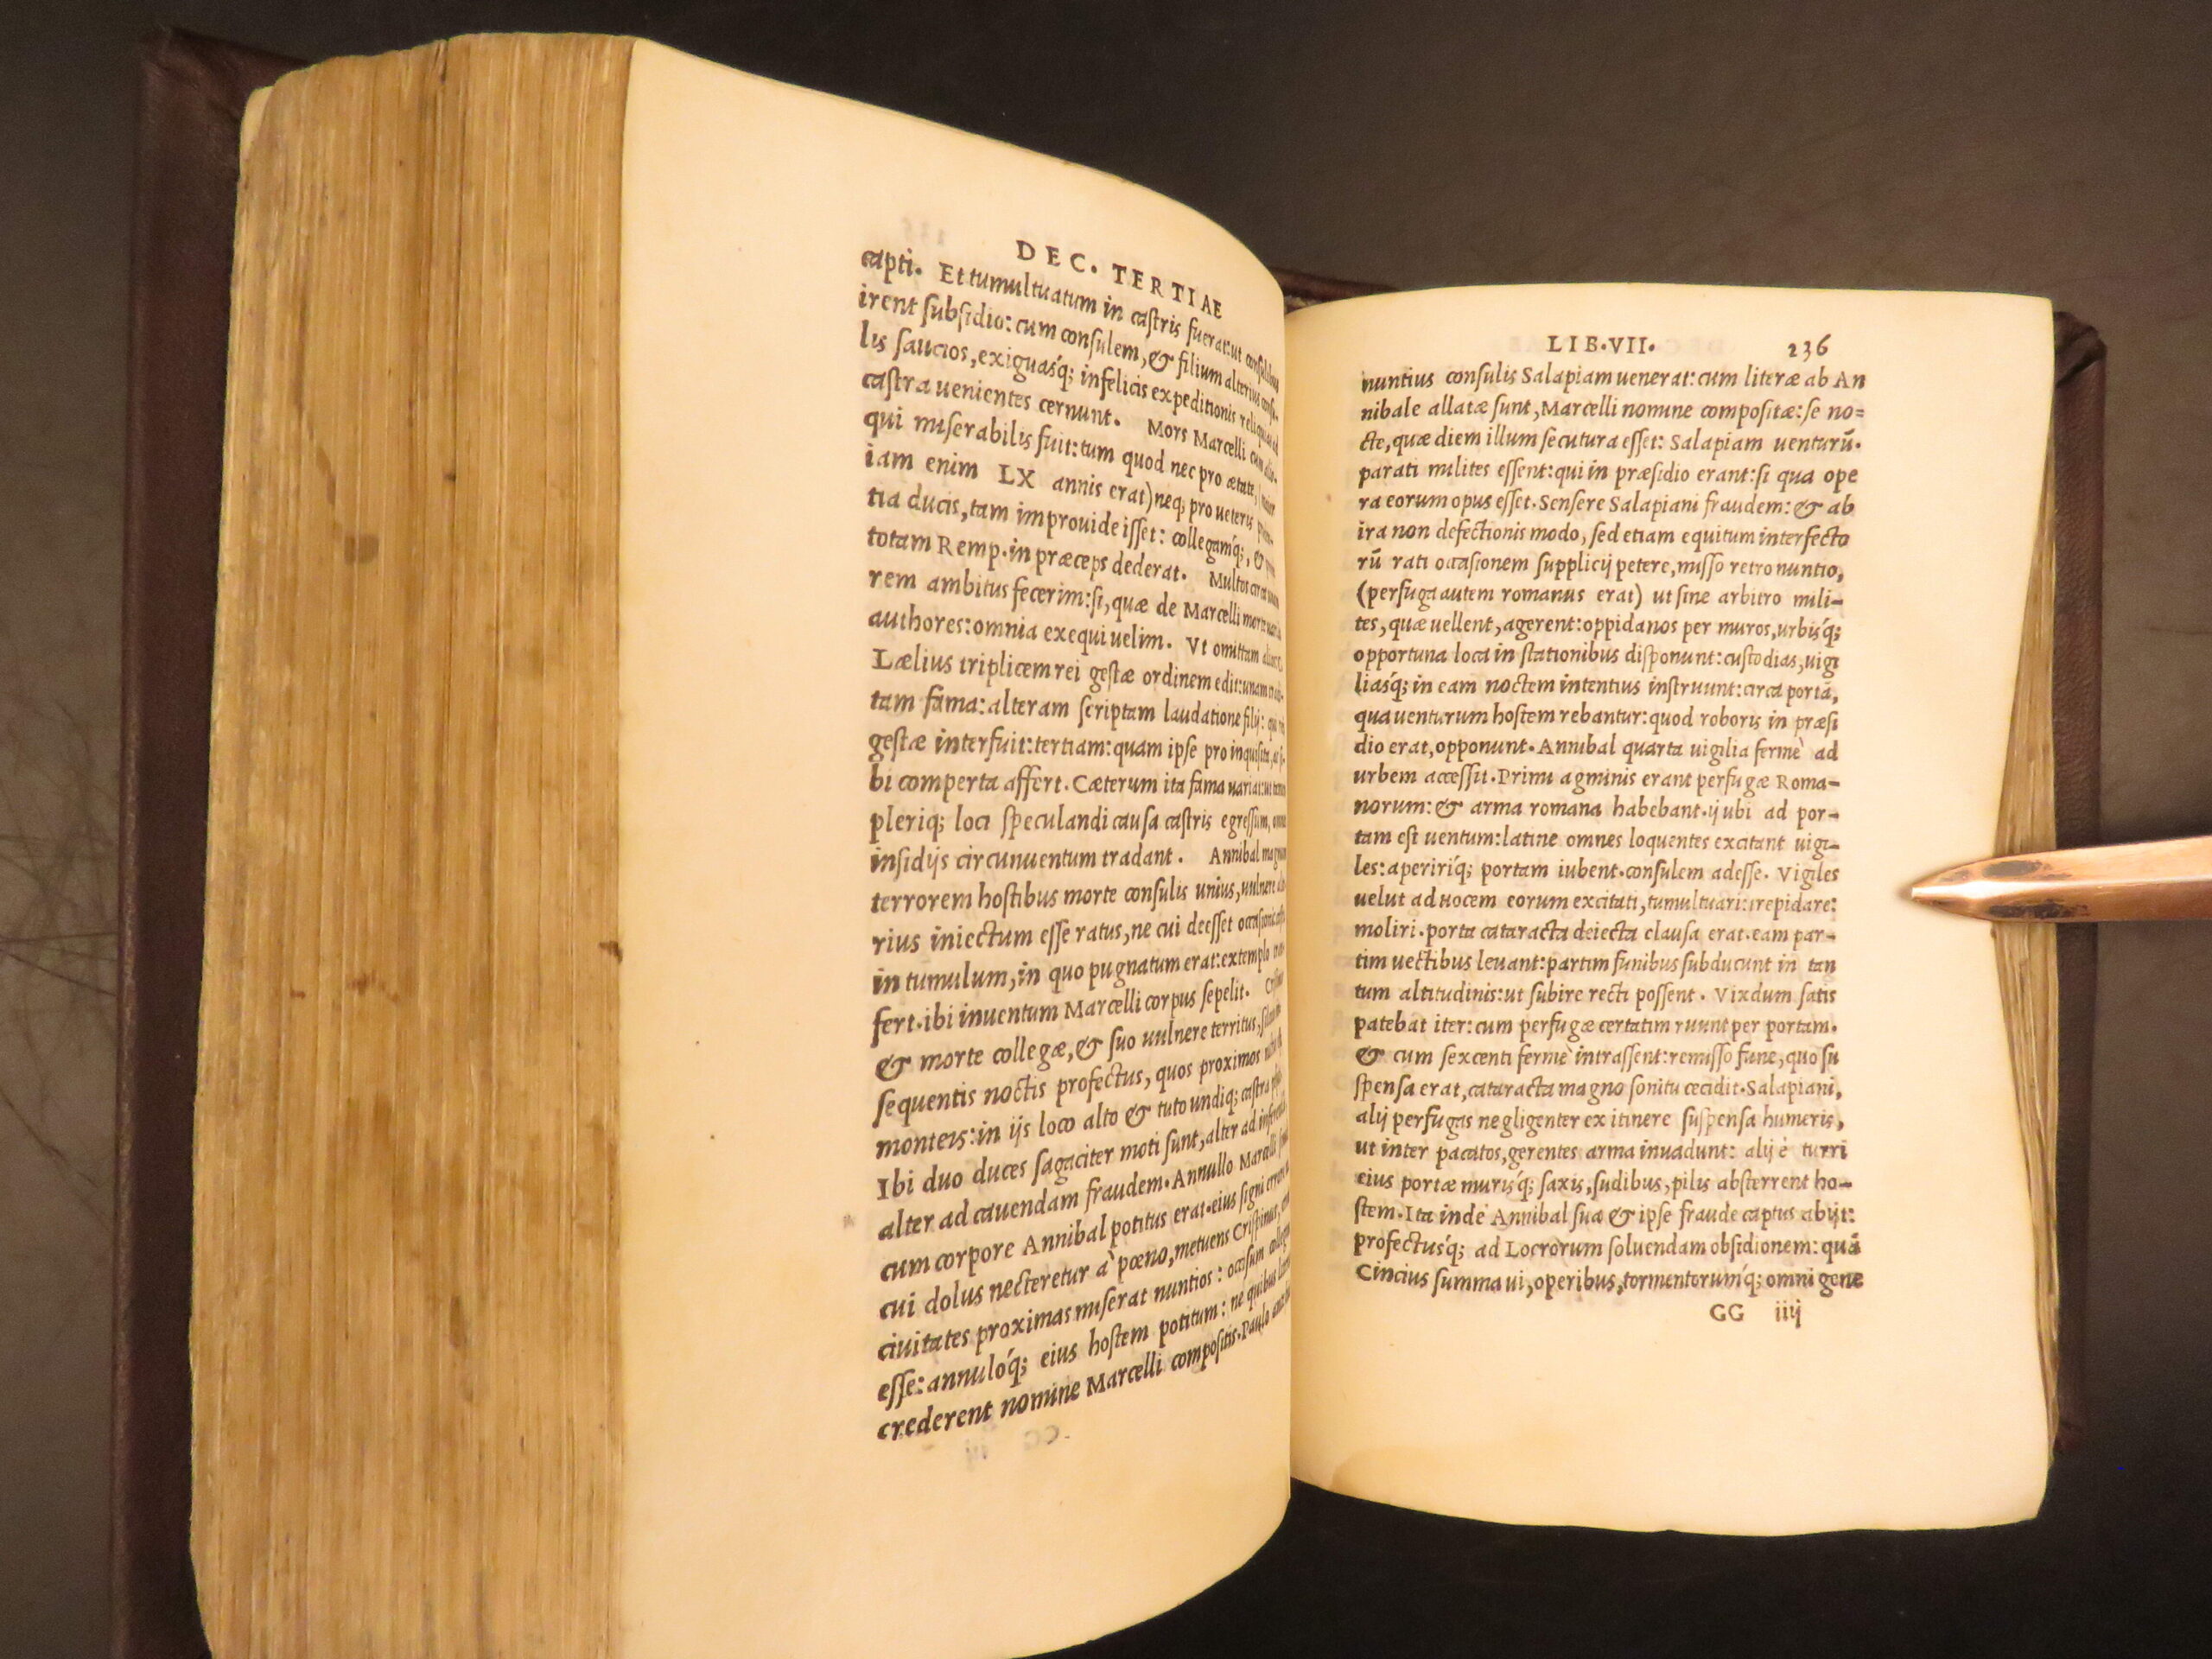 DEC. TERTIAE
capti. Et tumultuatum in caſtris fuerat:ut conſulibus
irent ſubſidio:cum conſulem,& filium alterius conſu-
lis ſaucios,exiguasq́; infelicis expeditionis reliquias ad
caſtra uenientes cernunt. Mors Marcelli cum alio-
qui miſerabilis fuit:tum quod nec pro ætate,(maior
iam enim LX annis erat)neq; pro ueteris pruden-
tia ducis,tam improuide iſſet: collegamq́;, &
totam Remp.in præceps dederat. Multos circa unam
rem ambitus fecerim:ſi,quæ de Marcelli morte uariant
authores:omnia exequi uelim. Vt omittam alios:
Lælius triplicem rei geſtæ ordinem edit:unam
tam fama:alteram ſcriptam laudatione filij: qui rei
geſtæ interfuit:tertiam:quam ipſe pro inquiſita,ac ſi-
bi comperta affert. Cæterum ita fama uariat:ut tamen
pleriq; loci ſpeculandi cauſa caſtris egreſſum, omnes
inſidijs circunuentum tradant. Annibal magnum
terrorem hoſtibus morte conſulis unius,uulnere alte
rius iniectum eſſe ratus,ne cui deeſſet occaſioni:caſtra
in tumulum,in quo pugnatum erat:extemplo tranſ
fert.ibi inuentum Marcelli corpus ſepelit. Criſpinus
& morte collegæ,& ſuo uulnere territus,ſilentio
ſequentis noctis profectus, quos proximos
monteis:in ijs loco alto & tuto undiq; caſtra
Ibi duo duces ſagaciter moti ſunt,alter ad inferendam
alter ad cauendam fraudem.Annullo Marcelli ſimul
cum corpore Annibal potitus erat.eius ſigni errore
cui dolus necteretur à pœno,metuens Criſpinus,
ciuitates proximas miſerat nuntios: occiſum collegam
eſſe:annuloq́; eius hoſtem potitum: ne quibus literis
crederent nomine Marcelli compoſitis.Paulo ante
LIB.VII. 236
nuntius conſulis Salapiam uenerat:cum literæ ab An
nibale allatæ ſunt,Marcelli nomine compoſitæ:ſe no=
cte,quæ diem illum ſecutura eſſet: Salapiam uenturũ.
parati milites eſſent:qui in præſidio erant:ſi qua ope
ra eorum opus eſſet.Senſere Salapiani fraudem:& ab
ira non defectionis modo, ſed etiam equitum interfecto
rũ rati occaſionem ſupplicij petere,miſſo retro nuntio,
(perfuga autem romanus erat) ut ſine arbitro mili-
tes,quæ uellent,agerent:oppidanos per muros,urbisq́;
opportuna loca in ſtationibus diſponunt:cuſtodias,uigi
liasq́; in eam noctem intentius inſtruunt:circa portã,
qua uenturum hoſtem rebantur:quod roboris in præſi
dio erat,opponunt.Annibal quarta uigilia fermè ad
urbem acceſſit.Primi agminis erant perfugæ Roma-
norum:& arma romana habebant.ij ubi ad por-
tam eſt uentum:latine omnes loquentes excitant uigi-
les:apeririq́; portam iubent.conſulem adeſſe. Vigiles
uelut ad uocem eorum excitati,tumultuari:trepidare:
moliri.porta cataracta deiecta clauſa erat.eam par-
tim uectibus leuant:partim funibus ſubducunt in tan
tum altitudinis:ut ſubire recti poſſent. Vixdum ſatis
patebat iter:cum perfugæ certatim ruunt per portam.
& cum ſexcenti fermè intraſſent:remiſſo fune,quo ſu
ſpenſa erat,cataracta magno ſonitu cecidit.Salapiani,
alij perfugas negligenter ex itinere ſuſpenſa humeris,
ut inter pacatos,gerentes arma inuadunt: alij è turri
eius portæ murisq́; ſaxis,ſudibus,pilis abſterrent ho-
ſtem.Ita inde Annibal ſua & ipſe fraude captus abijt:
profectusq́; ad Locrorum ſoluendam obſidionem: quã
Cincius ſumma ui,operibus,tormentorumq́; omni gene
GG iiij